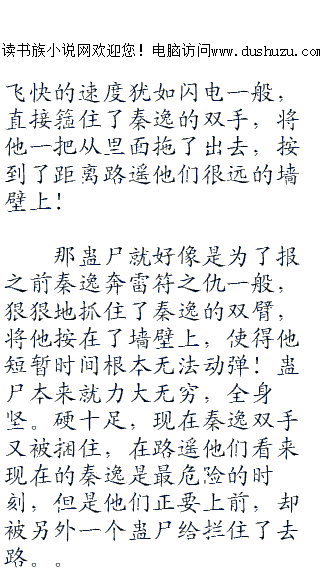 读书族小说网欢迎您！电脑访问www.dushuzu.com
飞快的速度犹如闪电一般，
直接箍住了秦逸的双手，将
他一把从里面拖了出去，按
到了距离路遥他们很远的墙
壁上！
那蛊尸就好像是为了报
之前秦逸奔雷符之仇一般，
狠狠地抓住了秦逸的双臂，
将他按在了墙壁上，使得他
短暂时间根本无法动弹！蛊
尸本来就力大无穷，全身
坚。硬十足，现在秦逸双手
又被捆住，在路遥他们看来
现在的秦逸是最危险的时
刻，但是他们正要上前，却
被另外一个蛊尸给拦住了去
路。。